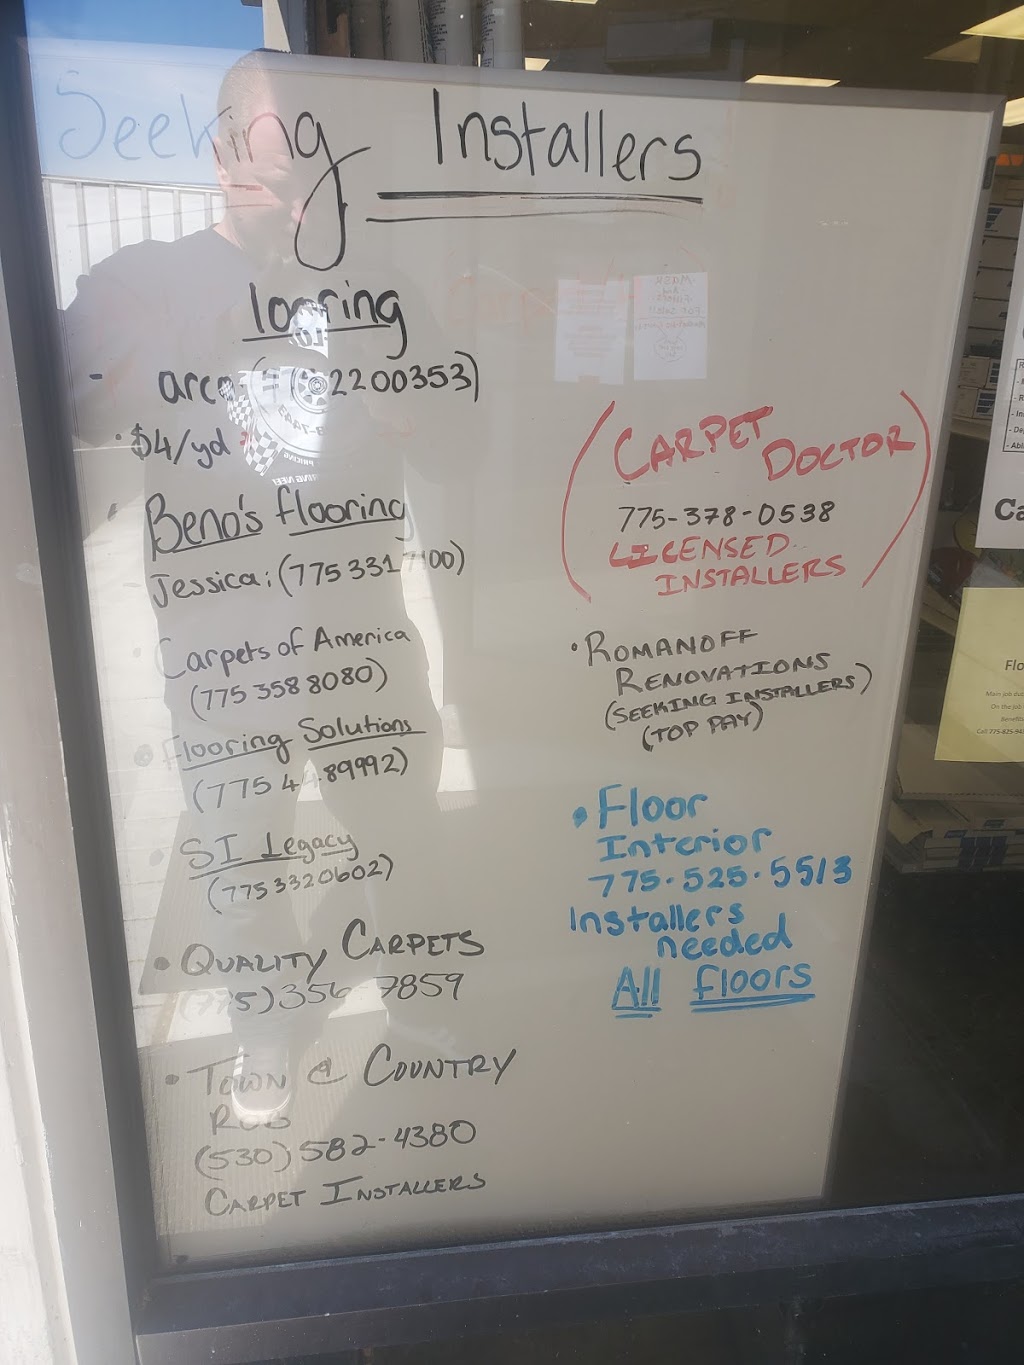 Seeking Installers
$4/yd
Beno's flooring
Jessica: (775 331 7100)
Carpets of America
(775 358 8080)
Flooring Solutions
(775 4 89992)
SI Legacy
(775 3320602)
• QUALITY CARPETS
(775) 356-7859
• TOWN & COUNTRY
ROB
(530) 582-4380
CARPET INSTALLERS
(CARPET DOCTOR)
775-378-0538
LICENSED
INSTALLERS
• ROMANOFF
RENOVATIONS
(SEEKING INSTALLERS)
(TOP PAY)
• Floor
Interior
775-525-5513
Installers
needed
All floors
MASK
FOR SALE!
Ca
Flo
Main job du
On the job
Benefit